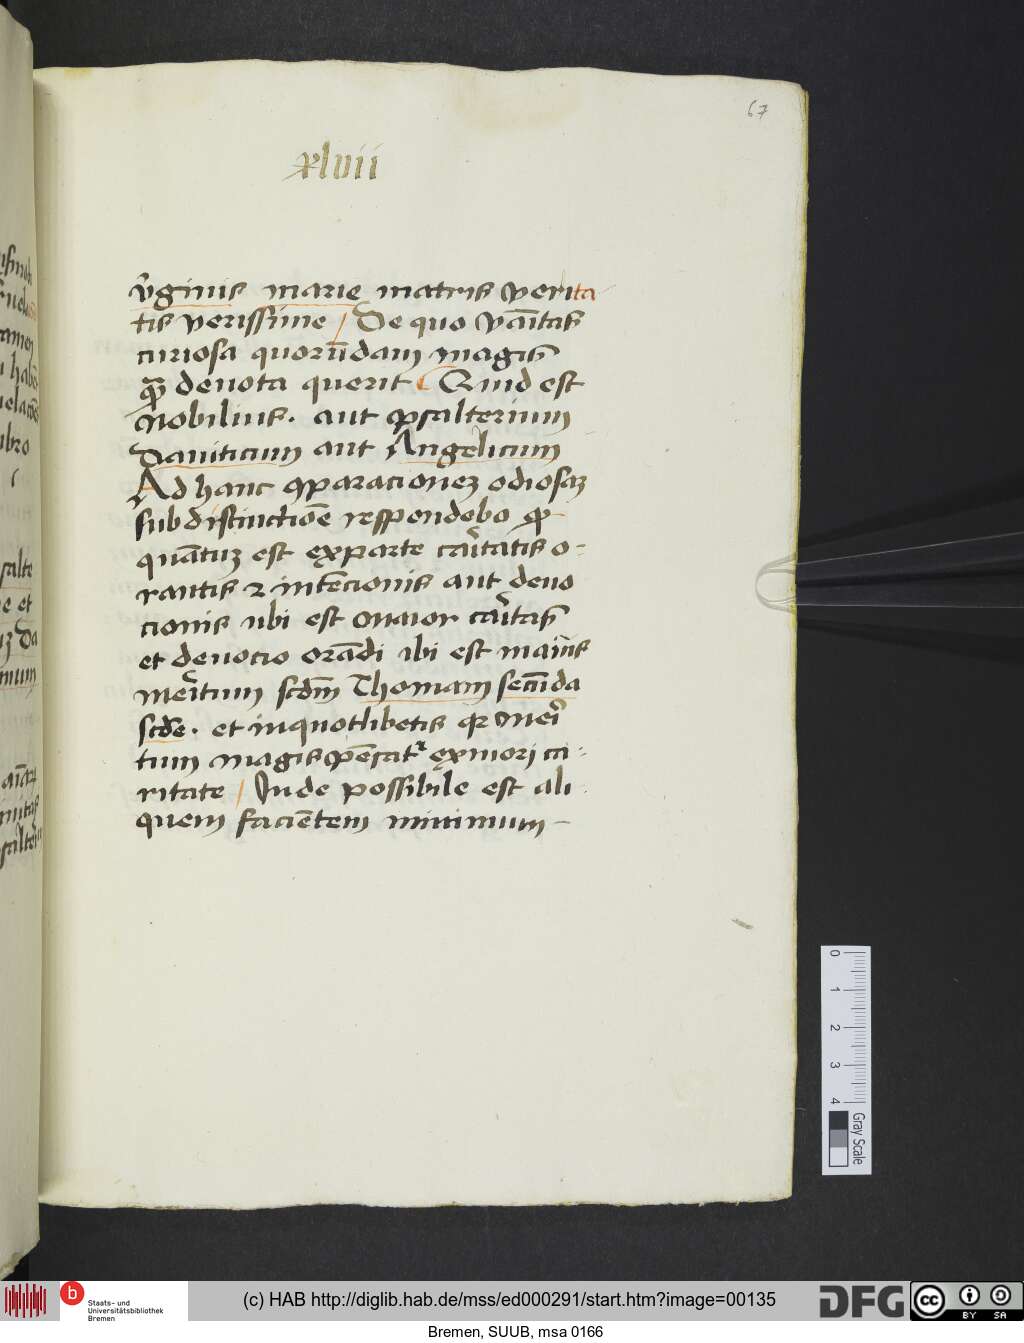 67
xlvii
v̄ginis marie matris verita
tis verissime / De quo vanitas
curiosa quorūdam magis
quā devota querit ( Quid est
nobilius . aut psalterium
Daviticum aut Angelicum
Ad hanc ꝯparacionez odiosaz
subdistinctiōe respondebo ꝙ
quātuz est exparte caritatis o-
rantis ⁊ intēcionis aut devo
cionis ubi est maior caritas
et devocio orādi ibi est maius
meritum scdm̄ Thomam secūda
scde . et in quotlibetis qr meri
tum magis pēsatr ex mori ca-
ritate / Inde possibile est ali
quem faciētem minimum -
salte
e et
mum
ibro
0 1 2 3 4
Gray Scale
b
Staats- und
Universitätsbibliothek
Bremen
(c) HAB http://diglib.hab.de/mss/ed000291/start.htm?image=00135
DFG
cc BY SA
Bremen, SUUB, msa 0166